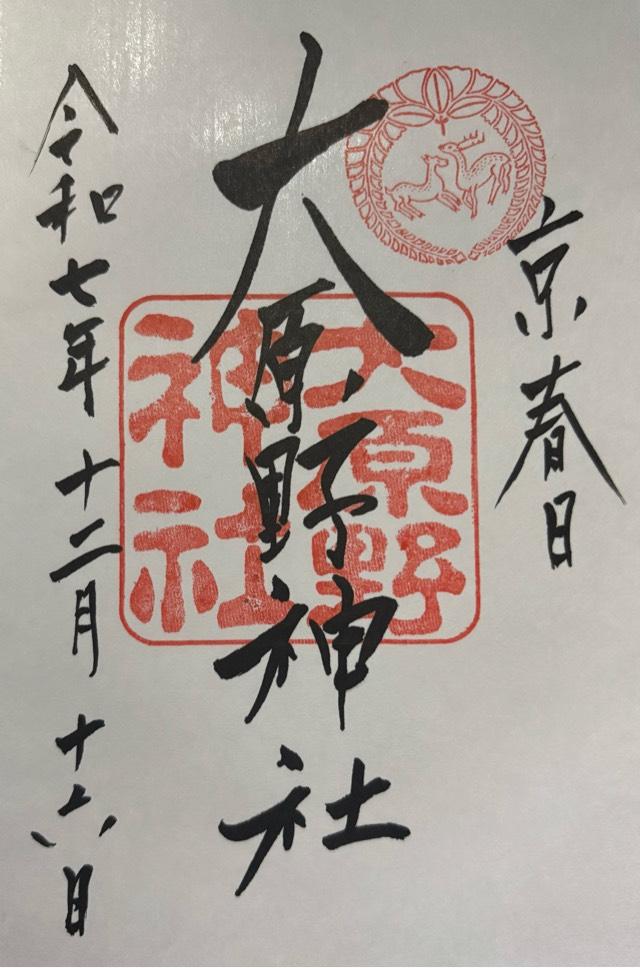 京春日
大原野神社
大原野
神社
令和七年十二月十六日